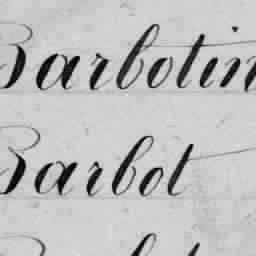 Barbotin
Barbot